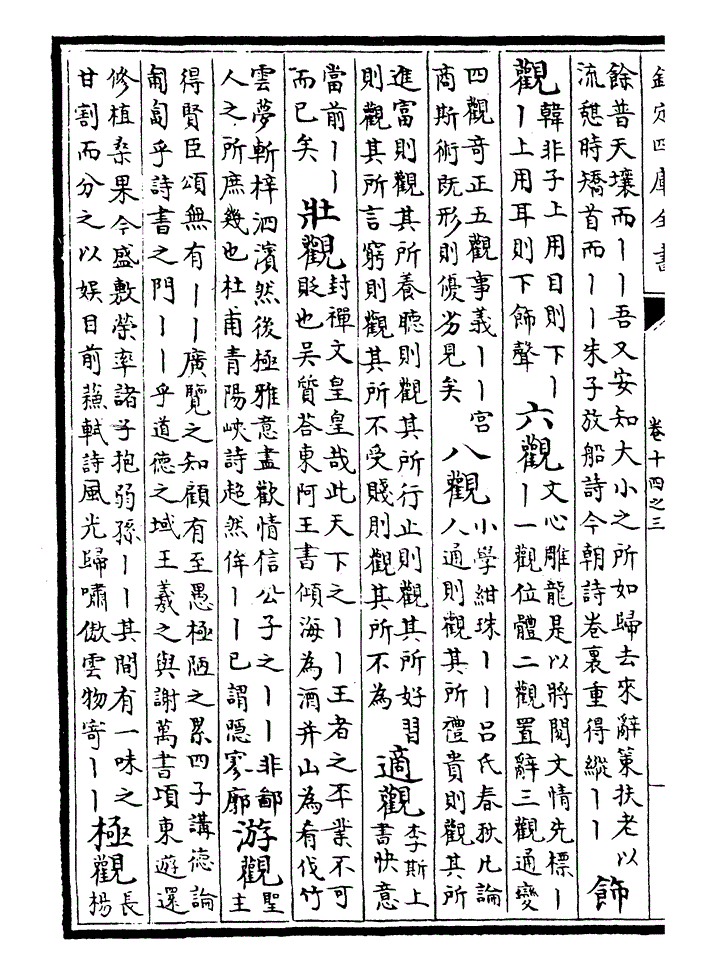 欽定四庫全書
卷十四之三
餘普天壤而丨丨吾又安知大小之所如歸去來辭策扶老以
流憩時矯首而丨丨朱子放船詩今朝詩卷裏重得縱丨丨
飾
觀
韓非子上用目則下丨
丨上用耳則下飾聲
六觀
文心雕龍是以將閱文情先標丨
丨一觀位體二觀置辭三觀通變
四觀奇正五觀事義丨丨宮
商斯術既形則優劣見矣
八觀
小學紺珠丨丨呂氏春秋凡論
人通則觀其所禮貴則觀其所
進富則觀其所養聽則觀其所行止則觀其所好習
則觀其所言窮則觀其所不受賤則觀其所不為
適觀
李斯上
書快意
當前丨丨
而已矣
壯觀
封禪文皇皇哉此天下之丨丨王者之丕業不可
貶也吳質荅東阿王書傾海為酒并山為肴伐竹
雲夢斬梓泗濱然後極雅意盡歡情信公子之丨丨非鄙
人之所庶幾也杜甫青陽峽詩超然侔丨丨已謂隱寥廓
游觀
聖
主
得賢臣頌無有丨丨廣覽之知顧有至愚極陋之累四子講德論
匍匐乎詩書之門丨丨乎道德之域王羲之與謝萬書頃東遊還
修植桑果今盛敷榮率諸子抱弱孫丨丨其間有一味之
甘割而分之以娛目前蘇軾詩風光歸嘯傲雲物寄丨丨
極觀
長
楊